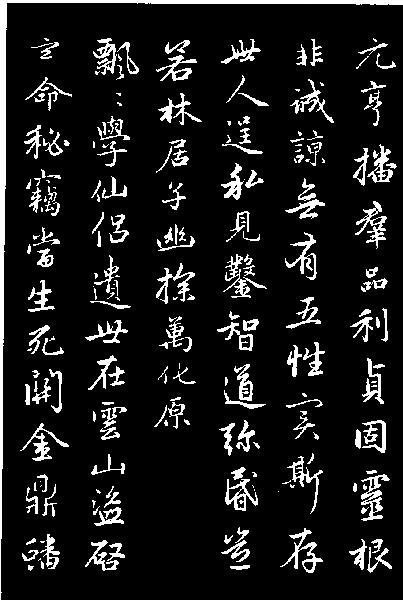 元亨播羣品利貞固靈根
非誠諒無有五性實斯存
世人逞私見鑿智道弥昬豈
若林居子幽探萬化原
飄〻學仙侶遺世在雲山盜啓
玄命秘竊當生死關金鼎蟠